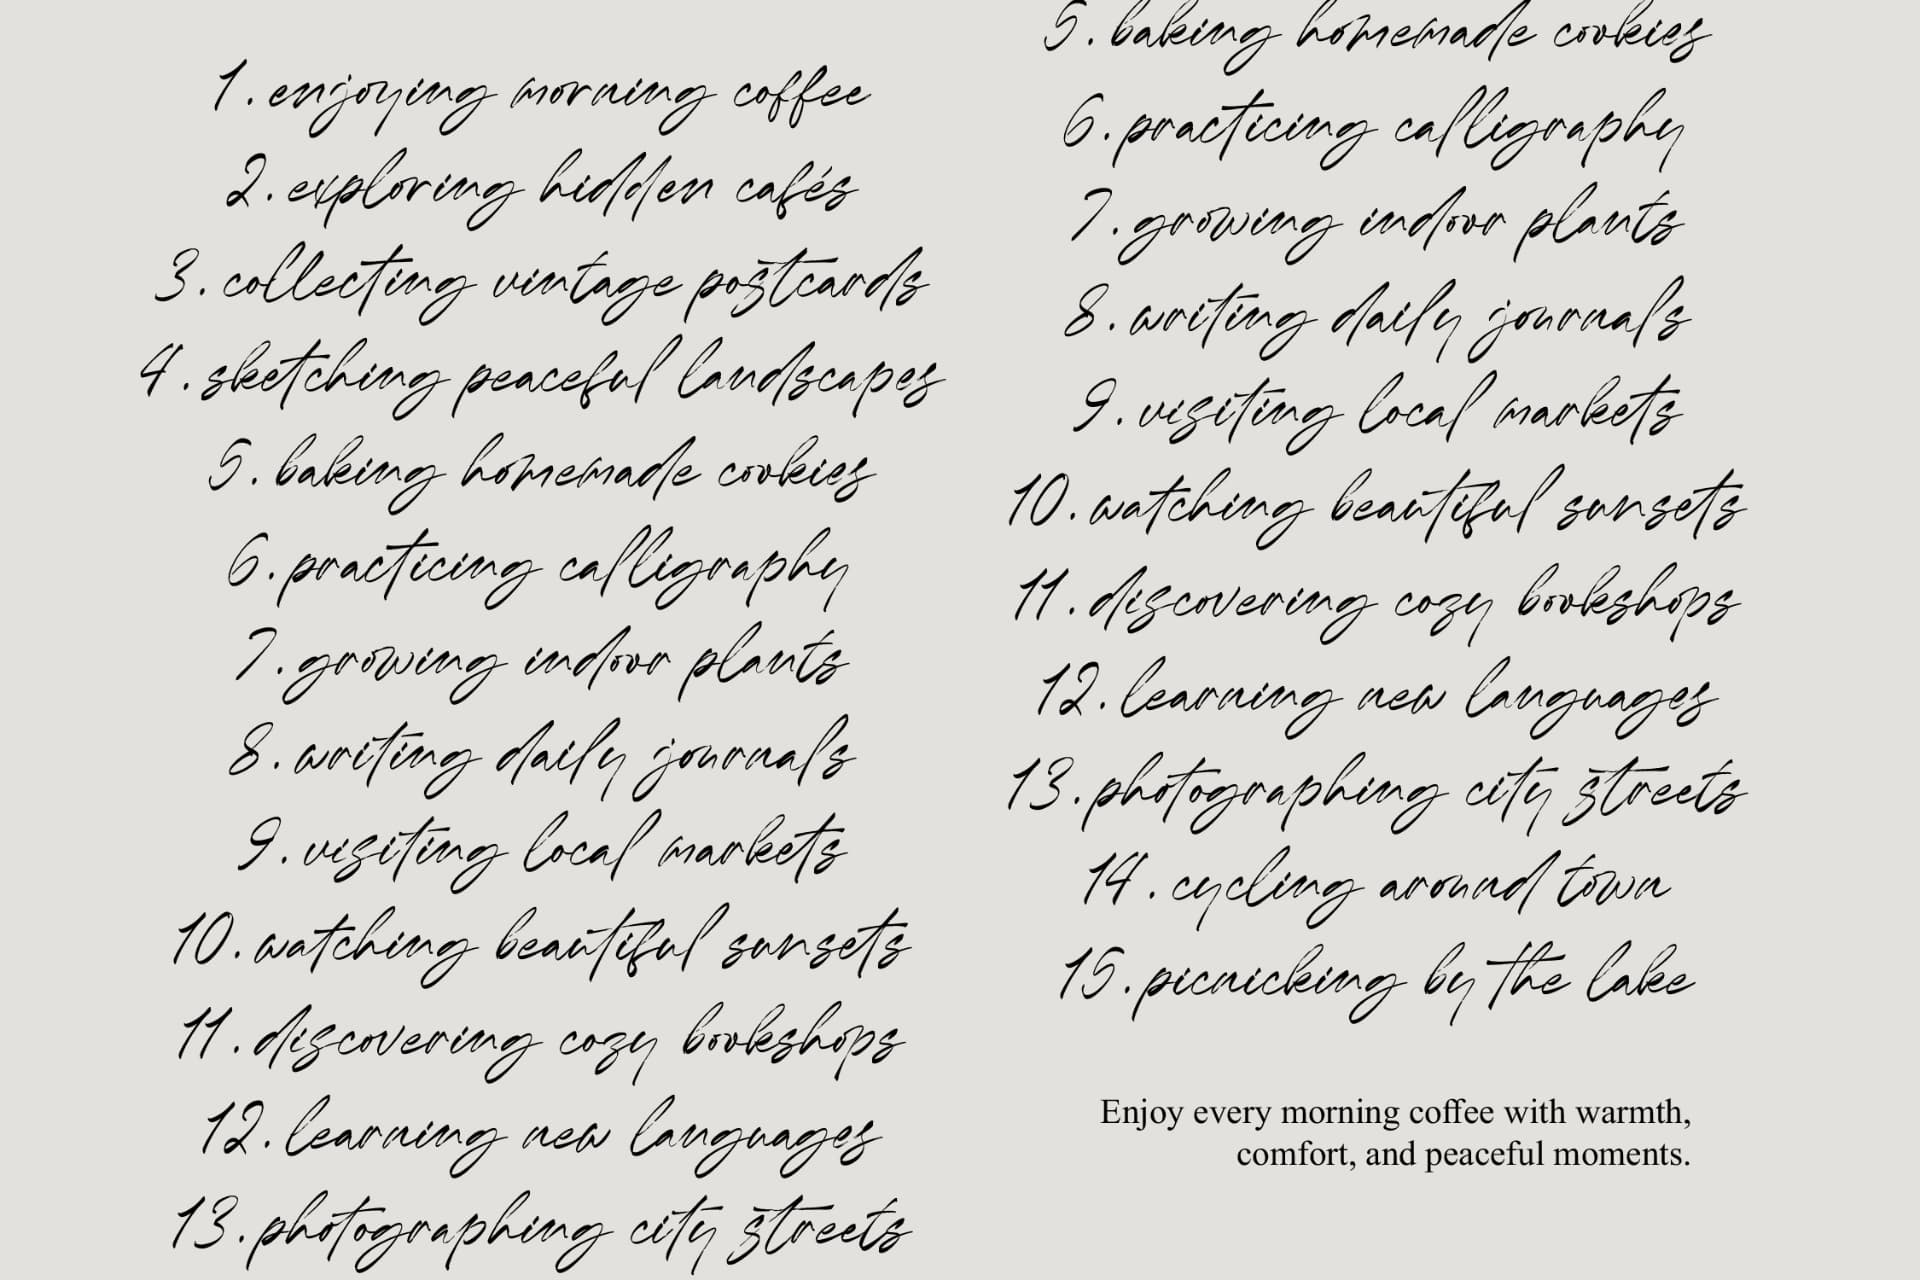 1. enjoying morning coffee
2. exploring hidden cafés
3. collecting vintage postcards
4. sketching peaceful landscapes
5. baking homemade cookies
6. practicing calligraphy
7. growing indoor plants
8. writing daily journals
9. visiting local markets
10. watching beautiful sunsets
11. discovering cozy bookshops
12. learning new languages
13. photographing city streets
5. baking homemade cookies
6. practicing calligraphy
7. growing indoor plants
8. writing daily journals
9. visiting local markets
10. watching beautiful sunsets
11. discovering cozy bookshops
12. learning new languages
13. photographing city streets
14. cycling around town
15. picnicking by the lake
Enjoy every morning coffee with warmth,
comfort, and peaceful moments.